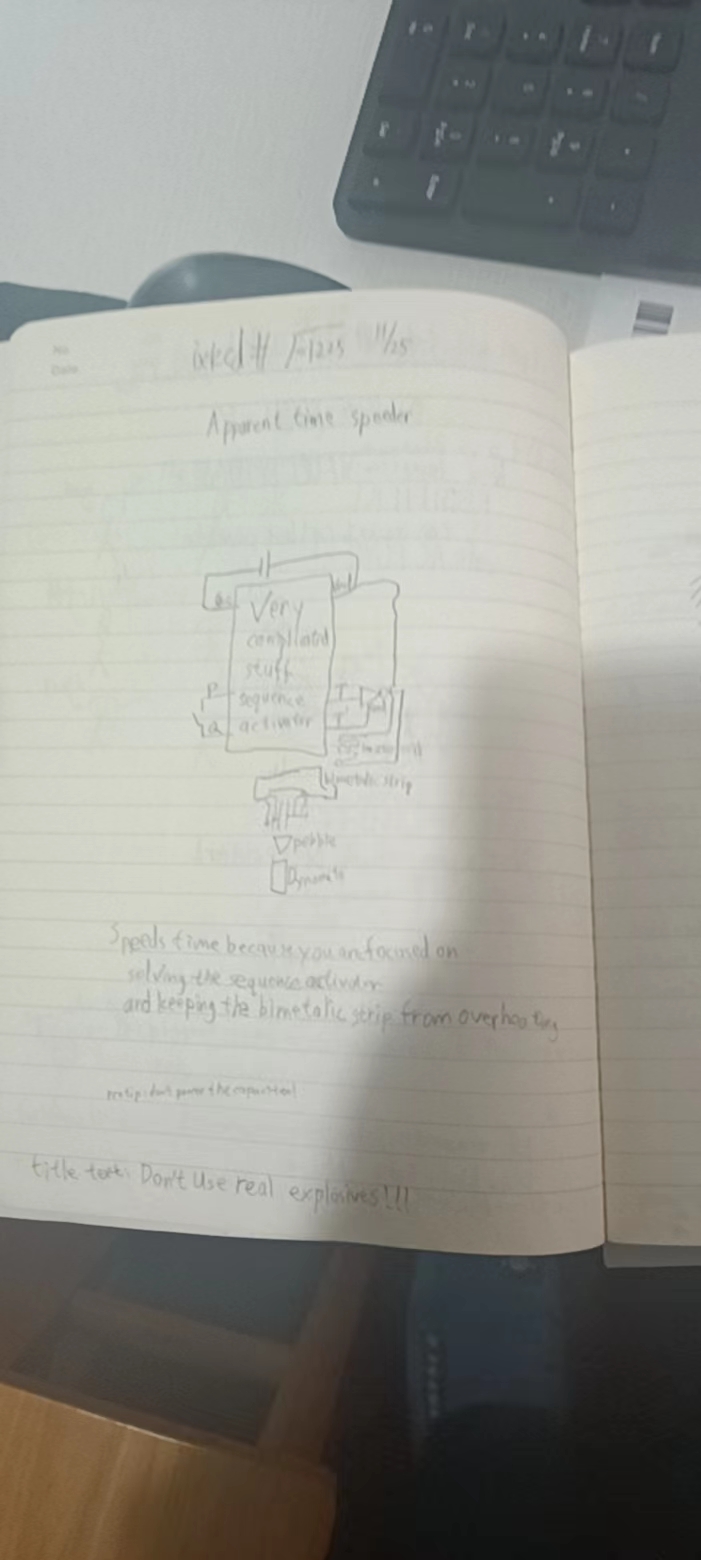 No.
Date
11/25
Apparent time speeder
Very
complicated
stuff
P
sequence
T
Q
activator
T
bimetalic strip
pebble
Dynamite
Speeds time because you are focused on
solving the sequence activator
and keeping the bimetalic strip from overheating
title text: Don't Use real explosives!!!